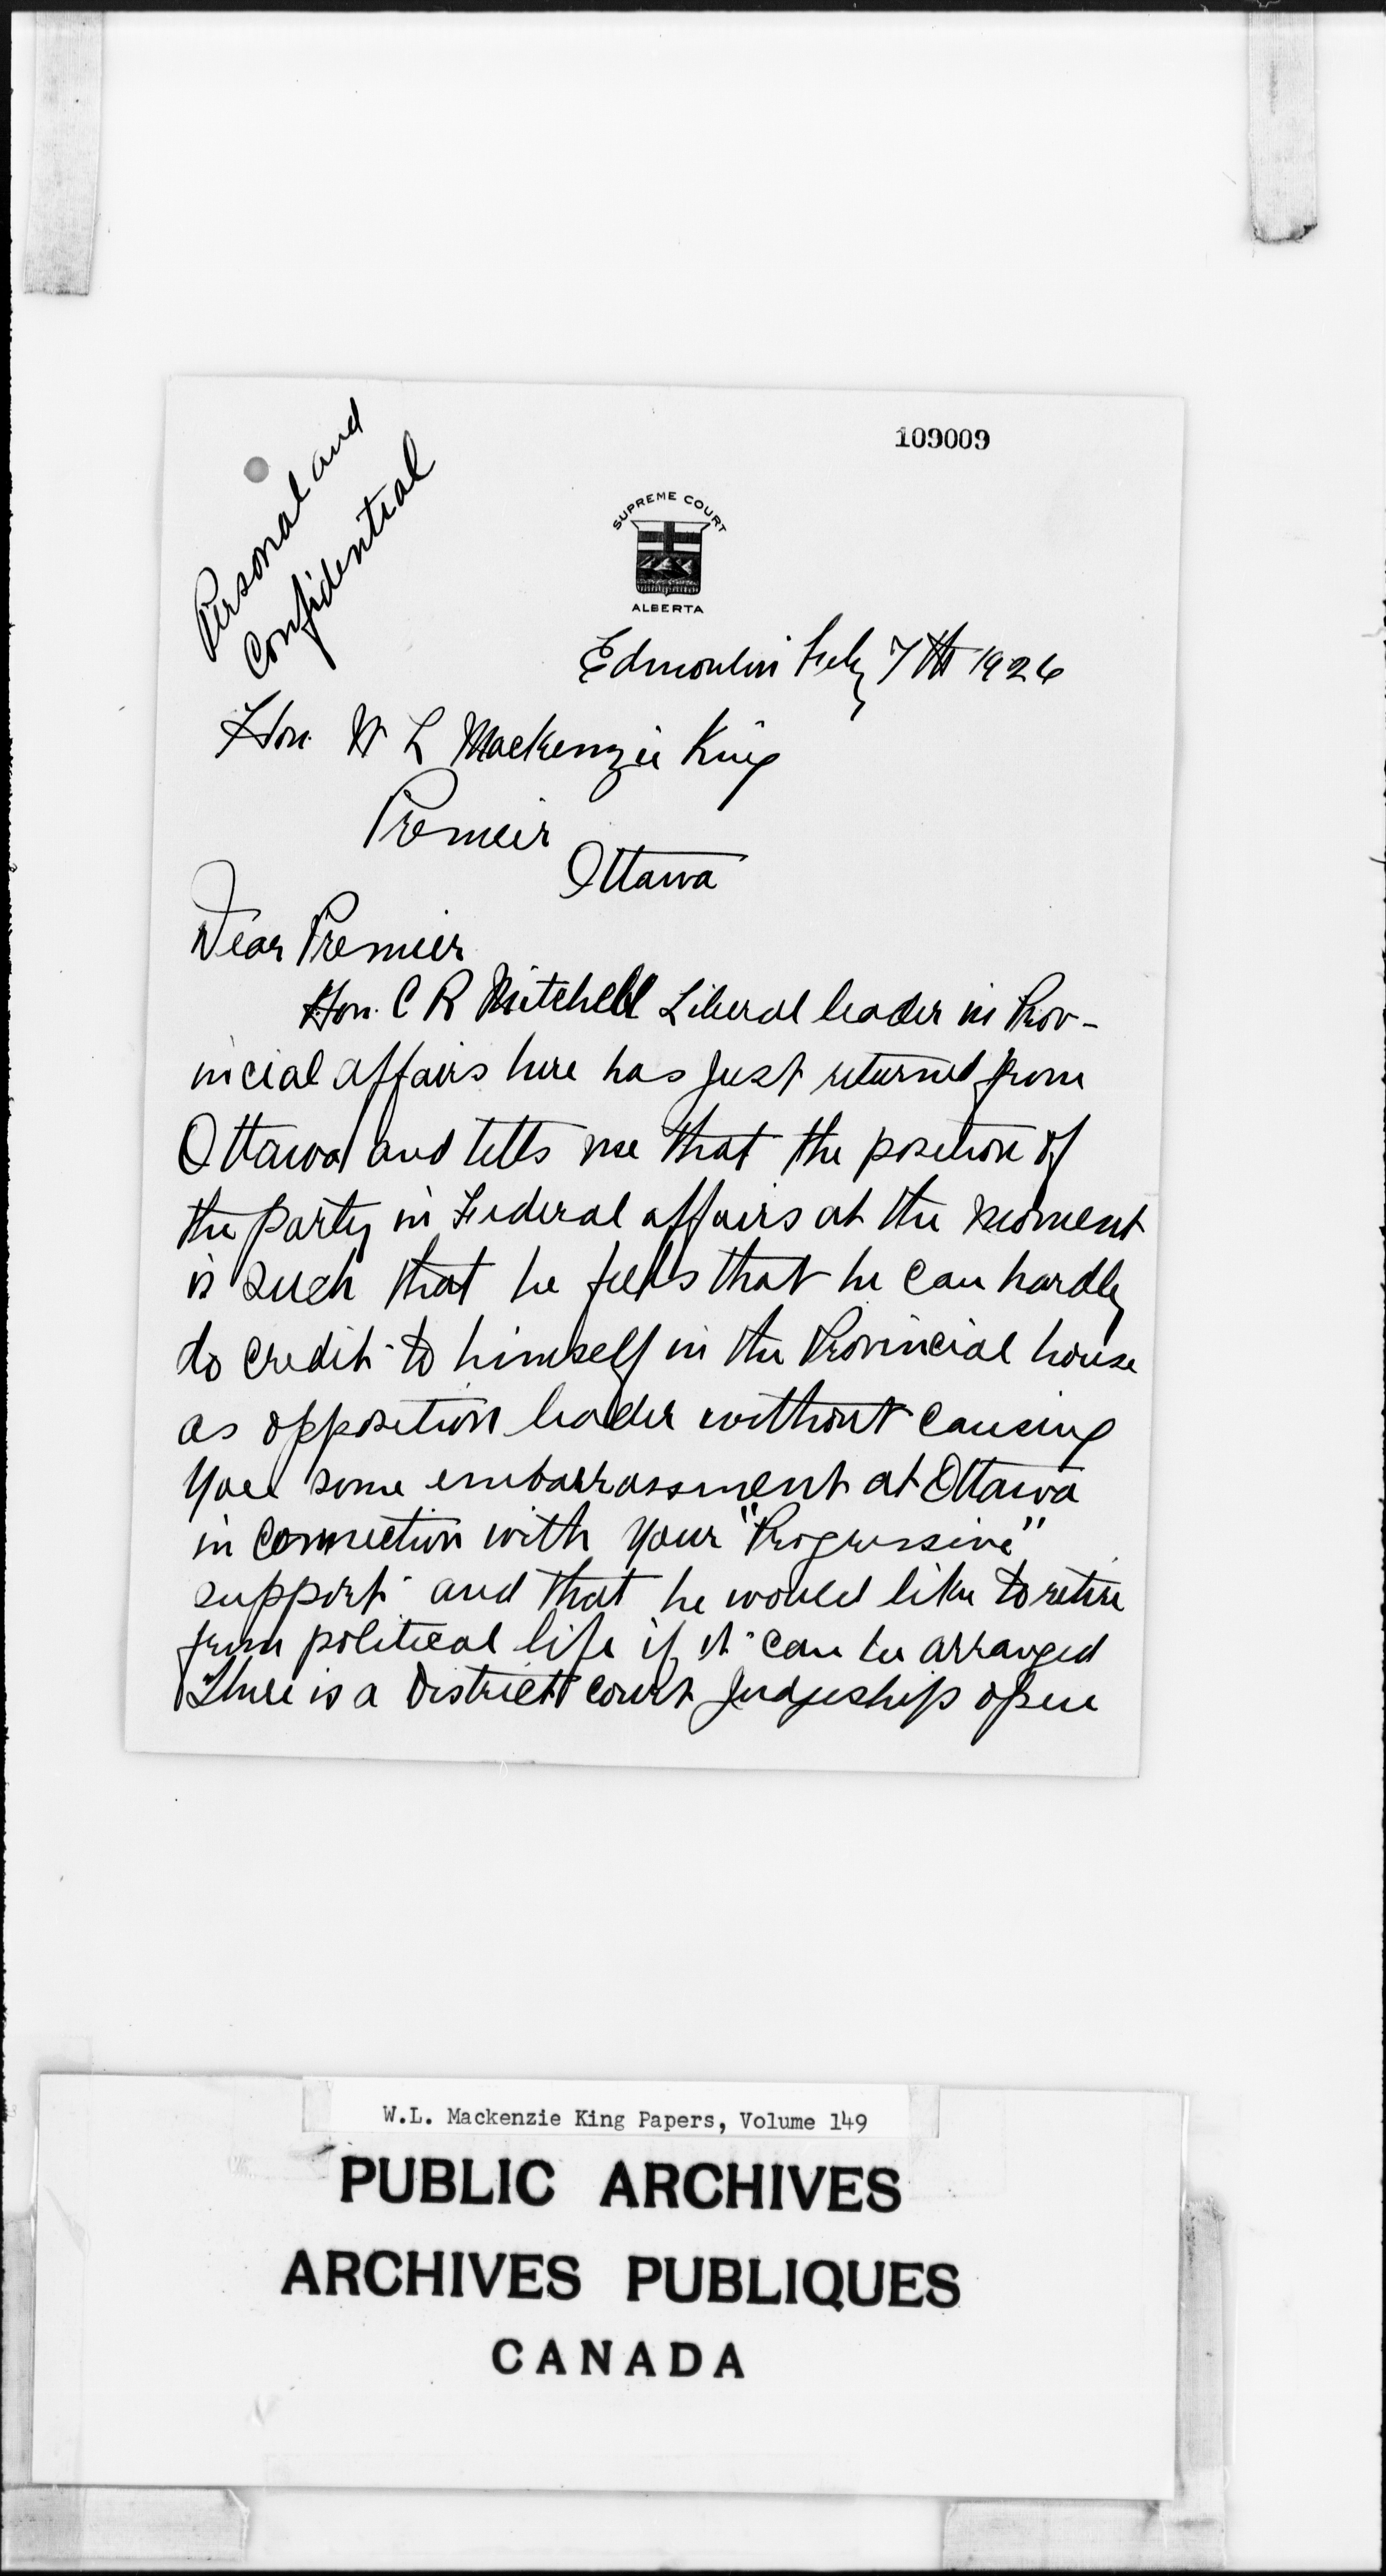 Personal and
Confidential
109009
SUPREME COURT
ALBERTA
Edmonton July 7th 1926
Hon. W L Mackenzie King
Premier
Ottawa
Dear Premier
Hon. C R Mitchell Liberal leader in Prov-
incial affairs here has just returned from
Ottawa and tells me that the position of
the party in Federal affairs at the moment
is such that he feels that he can hardly
do credit to himself in the Provincial house
as opposition leader without causing
you some embarrassment at Ottawa
in connection with your "Progressive"
support and that he would like to retire
from political life if it can be arranged
There is a District court Judgeship open
W.L. Mackenzie King Papers, Volume 149
PUBLIC ARCHIVES
ARCHIVES PUBLIQUES
CANADA